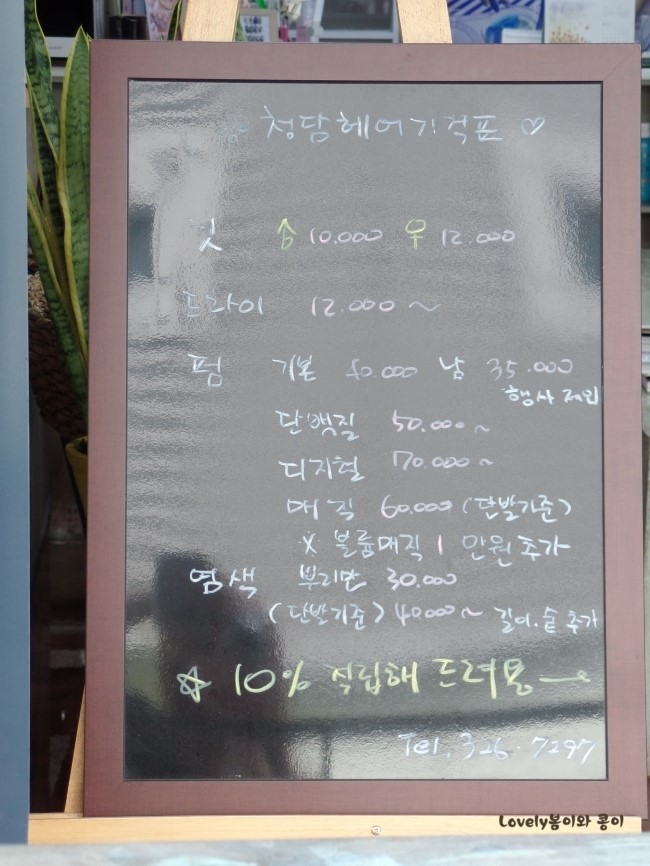 청담헤어가격표 ♡
컷 ♂ 10.000 ♀ 12.000
드라이 12.000 ~
펌 기본 40.000 남 35.000
행사 제외
단백질 50.000 ~
디지털 70.000 ~
매직 60.000 (단발기준)
※ 볼륨매직 1 만원 추가
염색 뿌리만 30.000
(단발기준) 40.000 ~ 길이.숱 추가
☆ 10% 적립해 드려용
Tel. 326.7297
Lovely봄이와 콩이